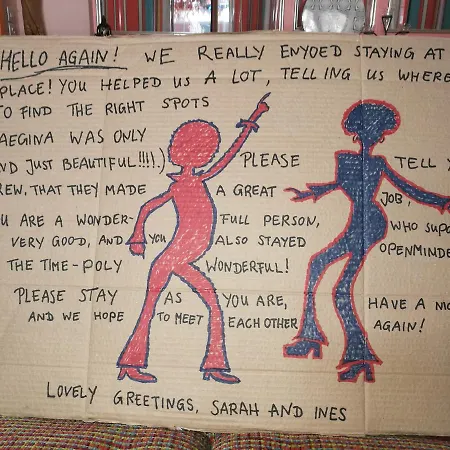 HELLO AGAIN! WE REALLY ENYOED STAYING AT
PLACE! YOU HELPED US A LOT, TELLING US WHERE
TO FIND THE RIGHT SPOTS
AEGINA WAS ONLY
ND JUST BEAUTIFUL!!!!).) PLEASE TELL Y
REW, THAT THEY MADE A GREAT JOB,
U ARE A WONDER- FULL PERSON, WHO SUPO
VERY GOOD, AND YOU ALSO STAYED OPENMINDE
THE TIME-POLY WONDERFUL!
PLEASE STAY AS YOU ARE, HAVE A NI
AND WE HOPE TO MEET EACH OTHER AGAIN!
LOVELY GREETINGS, SARAH AND INES